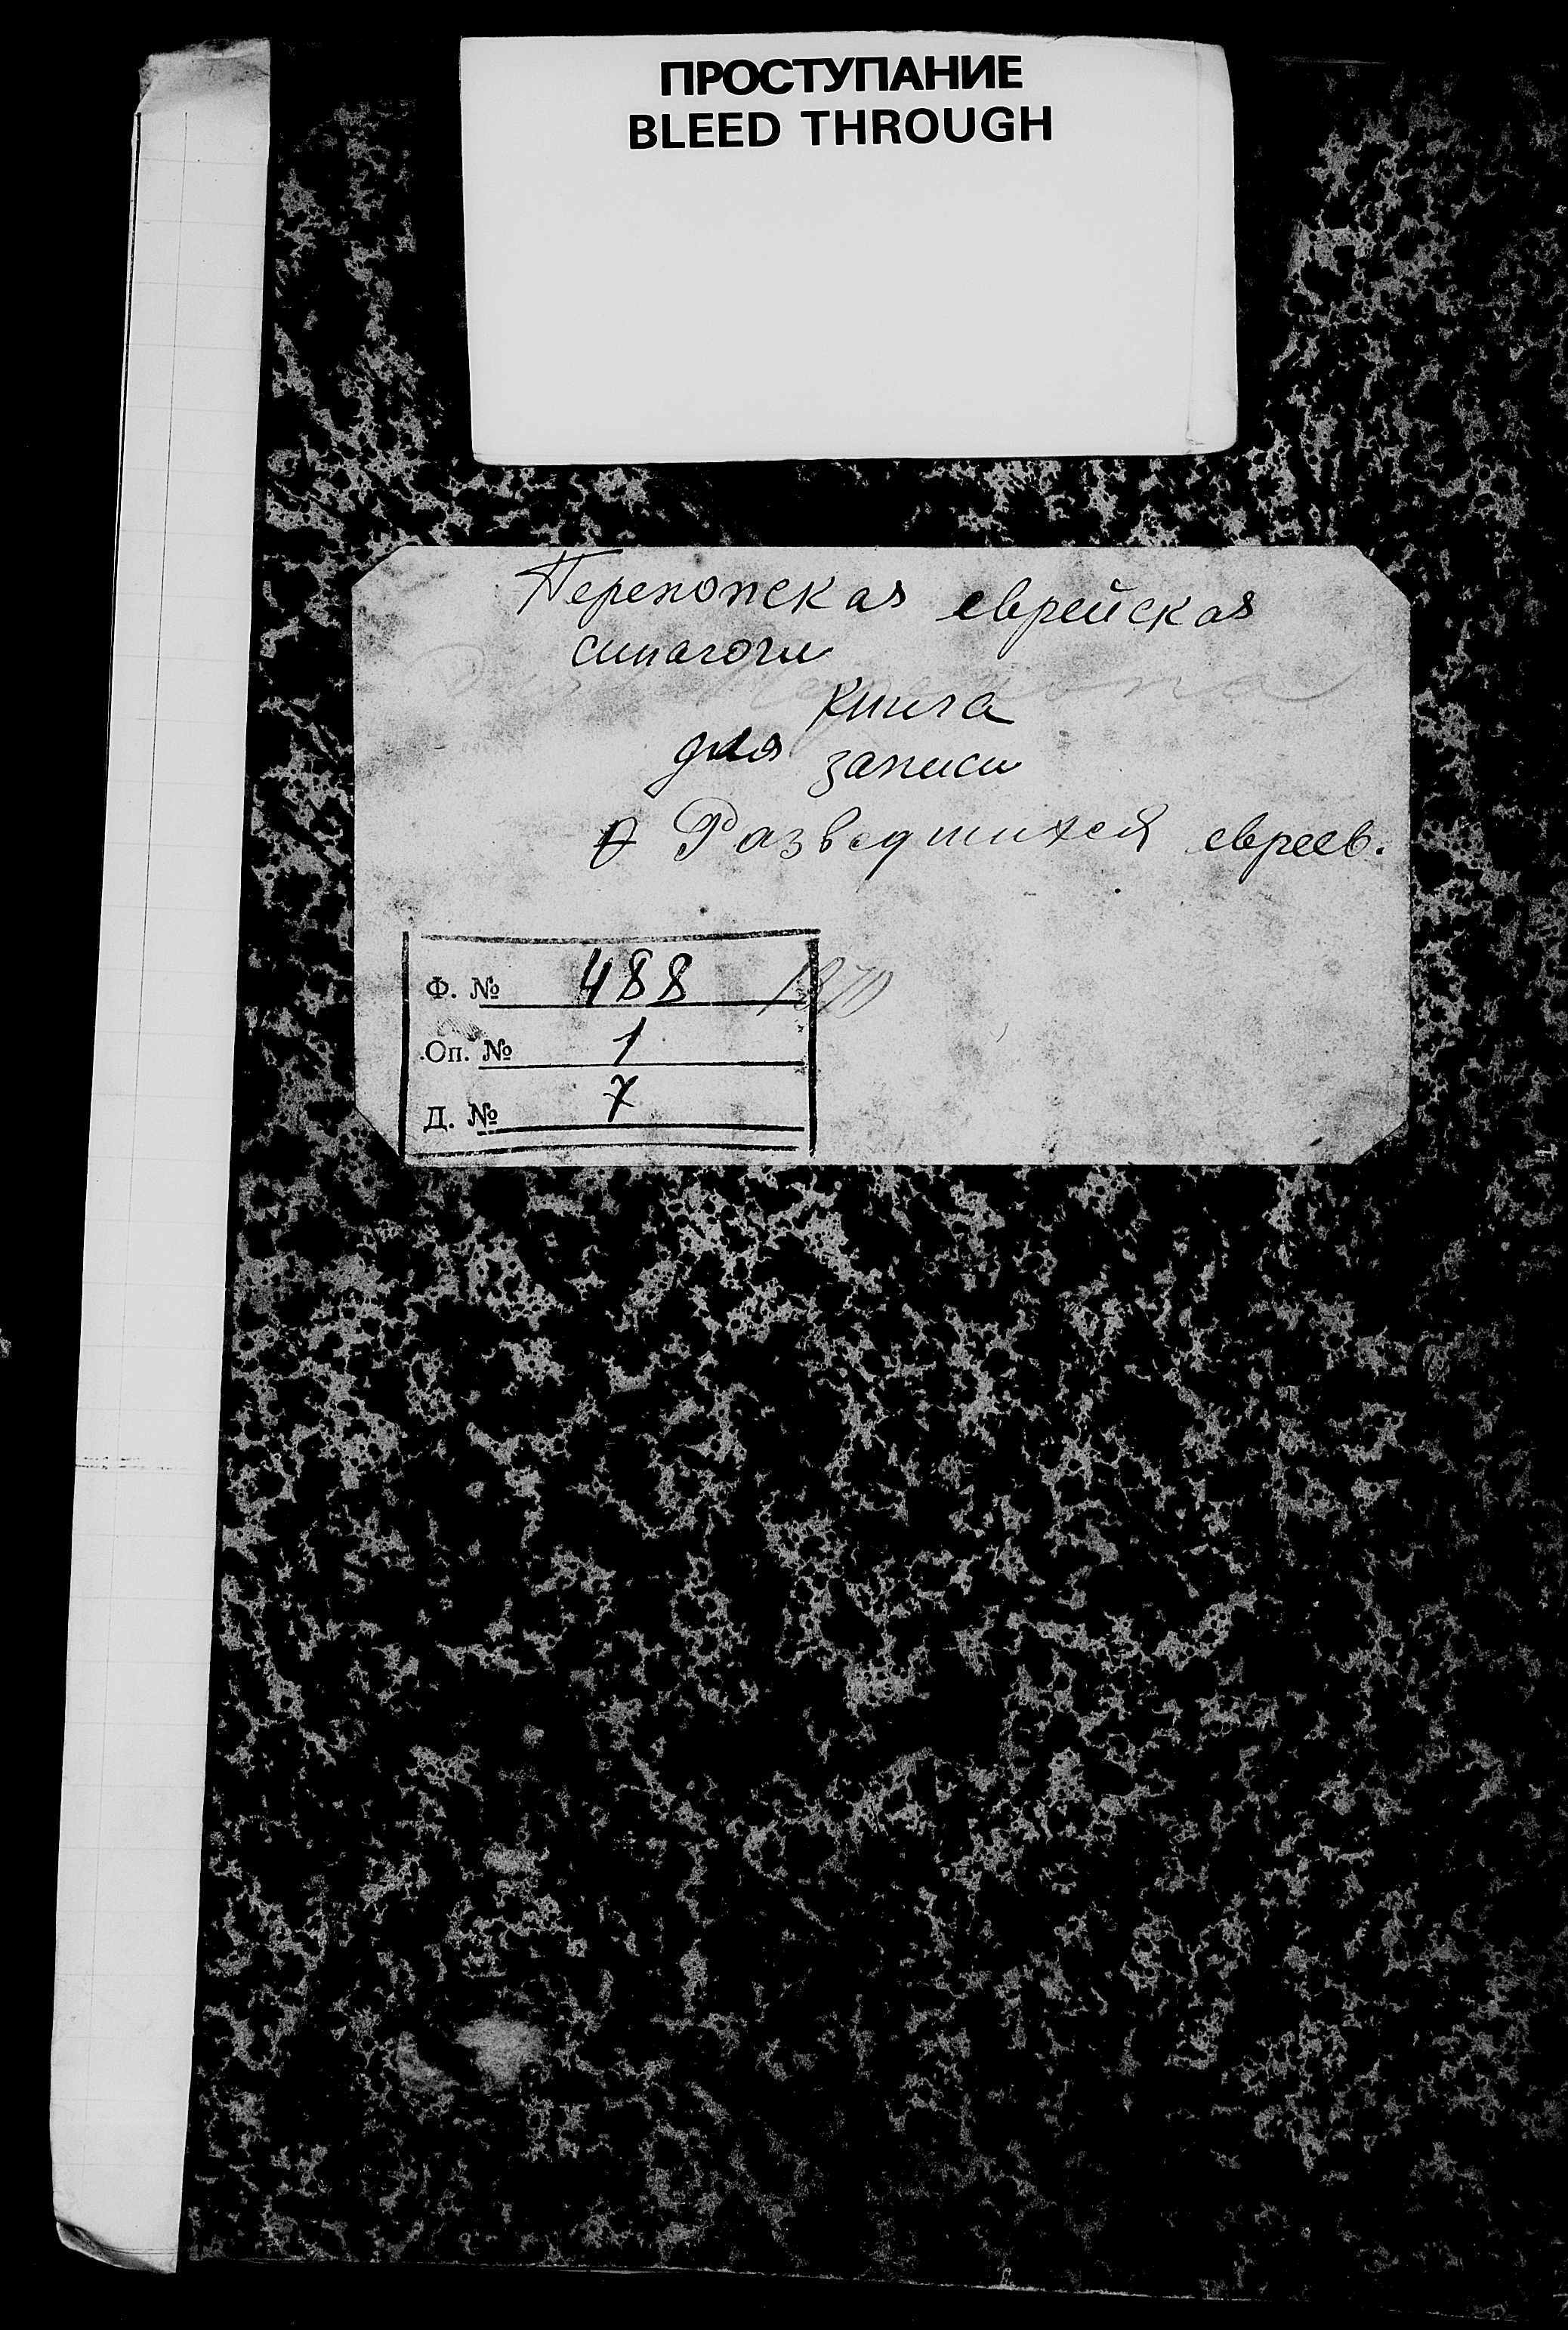 ПРОСТУПАНИЕ
BLEED THROUGH
Перекопская еврейская
синагоги
книга
для записи
о Разведшихся евреев.
Ф. № 488
1870
Оп. № 1
Д. № 7